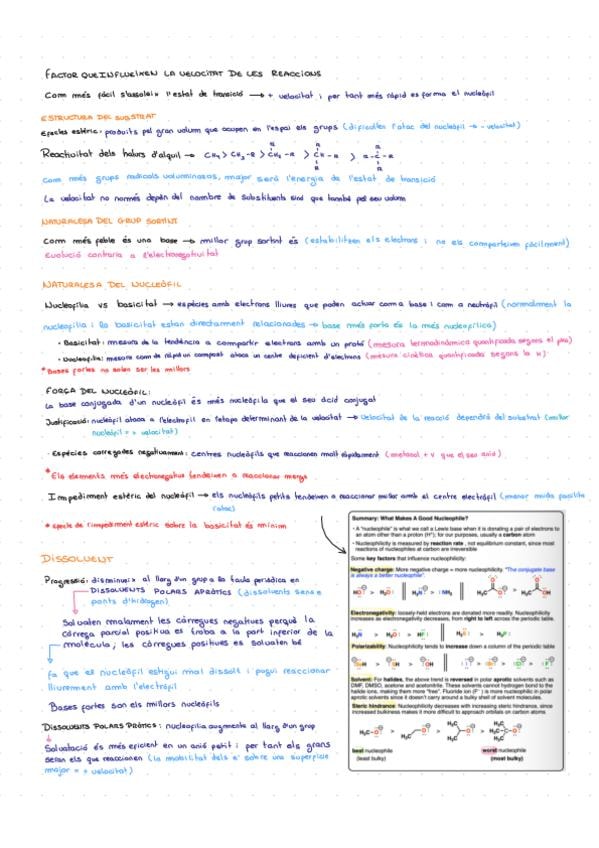 FACTOR QUE INFLUEIXEN LA VELOCITAT DE LES REACCIONS
Com més fàcil s'assoleix l'estat de transició → + velocitat i per tant més ràpid es forma el nucleòfil
ESTRUCTURA DEL SUBSTRAT
Efectes estèric: produïts pel gran volum que ocupen en l'espai els grups (dificulten l'atac del nucleòfil → - velocitat)
Reactivitat dels halurs d'alquil →
Com més grups radicals voluminosos, major serà l'energia de l'estat de transició
La velocitat no només depèn del nombre de substituents sinó que també pel seu volum
NATURALESA DEL GRUP SORTINT
Com més feble és una base → millor grup sortint és (estabilitzen els electrons i no els comparteixen fàcilment)
Evolució contraria a l'electronegativitat
NATURALESA DEL NUCLEÒFIL
Nucleofília vs basicitat → espècies amb electrons lliures que poden actuar com a base i com a neutròfil (normalment la
nucleofília i la basicitat estan directament relacionades → base més forta és la més nucleofílica)
• Basicitat: mesura de la tendència a compartir electrons amb un protó (mesura termodinàmica quantificada segons el pka)
• Nucleofília: mesura com de ràpid un compost ataca un centre deficient d'electrons (mesura cinètica quantificada segons la k)
* Bases fortes no solen ser les millors
FORÇA DEL NUCLEÒFIL:
La base conjugada d'un nucleòfil és més nucleòfila que el seu àcid conjugat
Justificació: nucleòfil ataca a l'electròfil en l'etapa determinant de la velocitat → Velocitat de la reacció dependrà del substrat (millor
nucleòfil = + velocitat)
· Espècies carregades negativament: centres nucleòfils que reaccionen molt ràpidament (metanol + v que el seu anió).
* Els elements més electronegatius tendeixen a reaccionar menys
Impediment estèric del nucleòfil → els nucleòfils petits tendeixen a reaccionar millor amb el centre electròfil (menor mida facilita
l'atac)
* efecte de l'impediment estèric sobre la basicitat és mínim
DISSOLVENT
Progressió: disminueix al llarg d'un grup a la taula periòdica en
DISSOLVENTS POLARS APRÒTICS (dissolvents sense
ponts d'hidrogen)
Solvaten malament les càrregues negatives perquè la
càrrega parcial positiva es troba a la part inferior de la
molècula; les càrregues positives es solvaten bé
Fa que el nucleòfil estigui mal dissolt i pugui reaccionar
lliurement amb l'electròfil
Bases fortes son els millors nucleòfils
DISSOLVENTS POLARS PRÒTICS: nucleofília augmenta al llarg d'un grup
Solvatació és més eficient en un anió petit i per tant els grans
seran els que reaccionen (la mobilitat dels e⁻ sobre una superfície
major = + velocitat)
Summary: What Makes A Good Nucleophile?
• A "nucleophile" is what we call a Lewis base when it is donating a pair of electrons to
an atom other than a proton (H⁺); for our purposes, usually a carbon atom
• Nucleophilicity is measured by reaction rate, not equilibrium constant, since most
reactions of nucleophiles at carbon are irreversible
Some key factors that influence nucleophilicity:
Negative charge: More negative charge = more nucleophilicity. "The conjugate base
is always a better nucleophile".
Electronegativity: loosely-held electrons are donated more readily. Nucleophilicity
increases as electronegativity decreases, from right to left across the periodic table.
Polarizability: Nucleophilicity tends to increase down a column of the periodic table
Solvent: For halides, the above trend is reversed in polar aprotic solvents such as
DMF, DMSO, acetone and acetonitrile. These solvents cannot hydrogen bond to the
halide ions, making them more "free". Fluoride ion (F⁻) is more nucleophilic in polar
aprotic solvents since it doesn't carry around a bulky shell of solvent molecules.
Steric hindrance: Nucleophilicity decreases with increasing steric hindrance, since
increased bulkiness makes it more difficult to approach orbitals on carbon atoms
best nucleophile
(least bulky)
worst nucleophile
(most bulky)